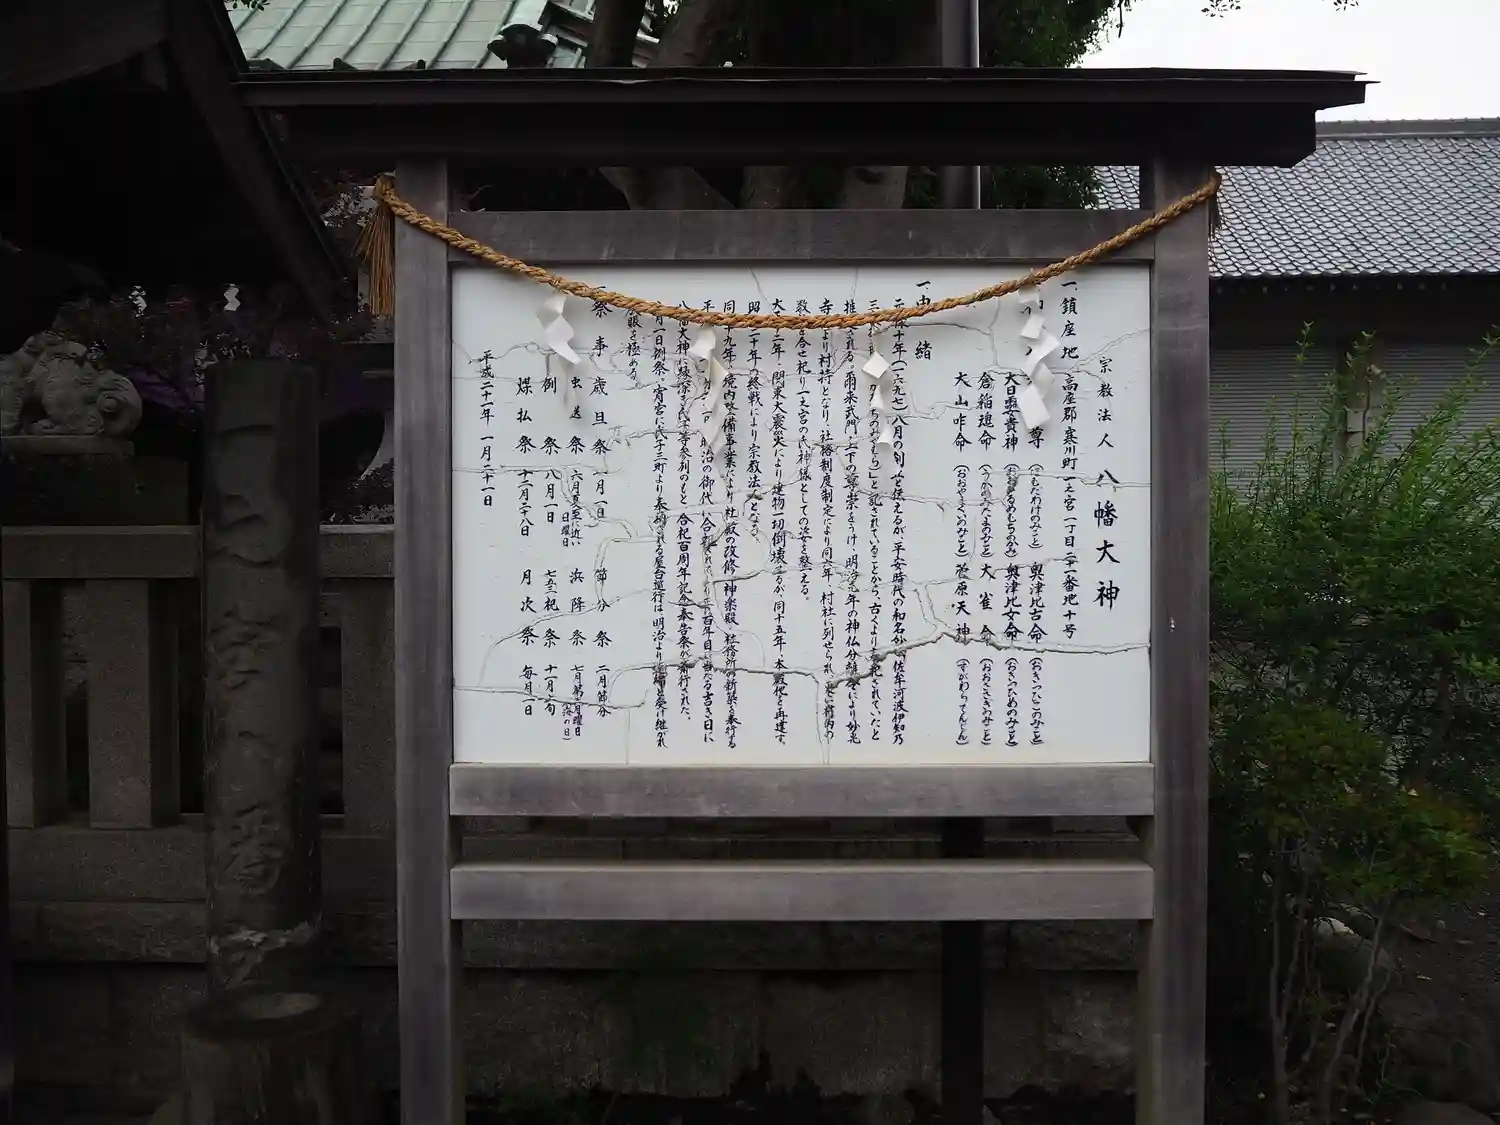 宗教法人 八幡大神
一、鎮座地 高座郡寒川町一之宮一丁目二十一番地十号
尊 (ほもだわけのみこと) 奥津比古命 (おきつひこのみこと)
大日霊貴神 (おおひるめむちのかみ) 奥津比女命 (おきつひめのみこと)
倉稲魂命 (うかのみたまのみこと) 大雀命 (おおさざきのみこと)
大山咋命 (おおやまくいのみこと) 菅原天神 (すがわらてんじん)
一、由緒
元禄十年(一六九七)八月の創立と伝えるが、平安時代の和名か 佐牟河波伊知乃
と記されていることから、古くより奉祀されていたと
推される。爾来武門 以下の尊崇をうけ、明治元年の神仏分離令により妙光
寺 より村持となり、社格制度制定により同六年、村社に列せられ 更に構内の
数 を合せ祀り一之宮の氏神様としての姿を整える。
大 二年、関東大震災により建物一切倒壊するが、同十五年、本殿他を再建す。
昭 二十年の終戦により宗教法人となる。
同 十九年、境内整備事業により、社殿の改修、神楽殿、社務所の新築を奉行する
平 明治の御代に合祀 百年目に当たる吉き日に
八幡大神に縁深き氏子等参列のもと、合祀百周年記念奉告祭が斎行された。
月一日例祭、宵宮に氏子三町より奉納される屋台巡行は明治より連綿と受け継がれ
殷賑を極める。
一、祭事 歳旦祭 一月一日 節分祭 二月節分
虫送祭 六月夏至に近い日曜日 浜降祭 七月第三月曜日(海の日)
例祭 八月一日 七五三祝祭 十一月上旬
煤払祭 十二月二十八日 月次祭 毎月一日
平成二十一年 一月二十一日
一之宮八幡